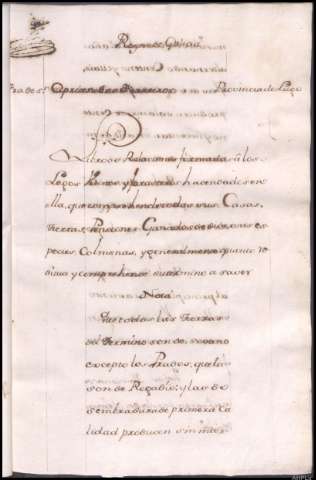 Reyno de Galicia
Provincia de Lugo
Libro o Relacion formada a los
Legos Vezinos y forasteros hacendados en
ella, que comprehende todas sus Casas,
tierras, Pensiones Ganados de todas es
pecies, Colmenas, y generalmente quanto
y comprehende su termino a saver
Nota
Que todas las tierras
del Termino son de secano
excepto los Prados, que
son de Regadio; y las de
sembradura de primera Ca
lidad producen sin inter